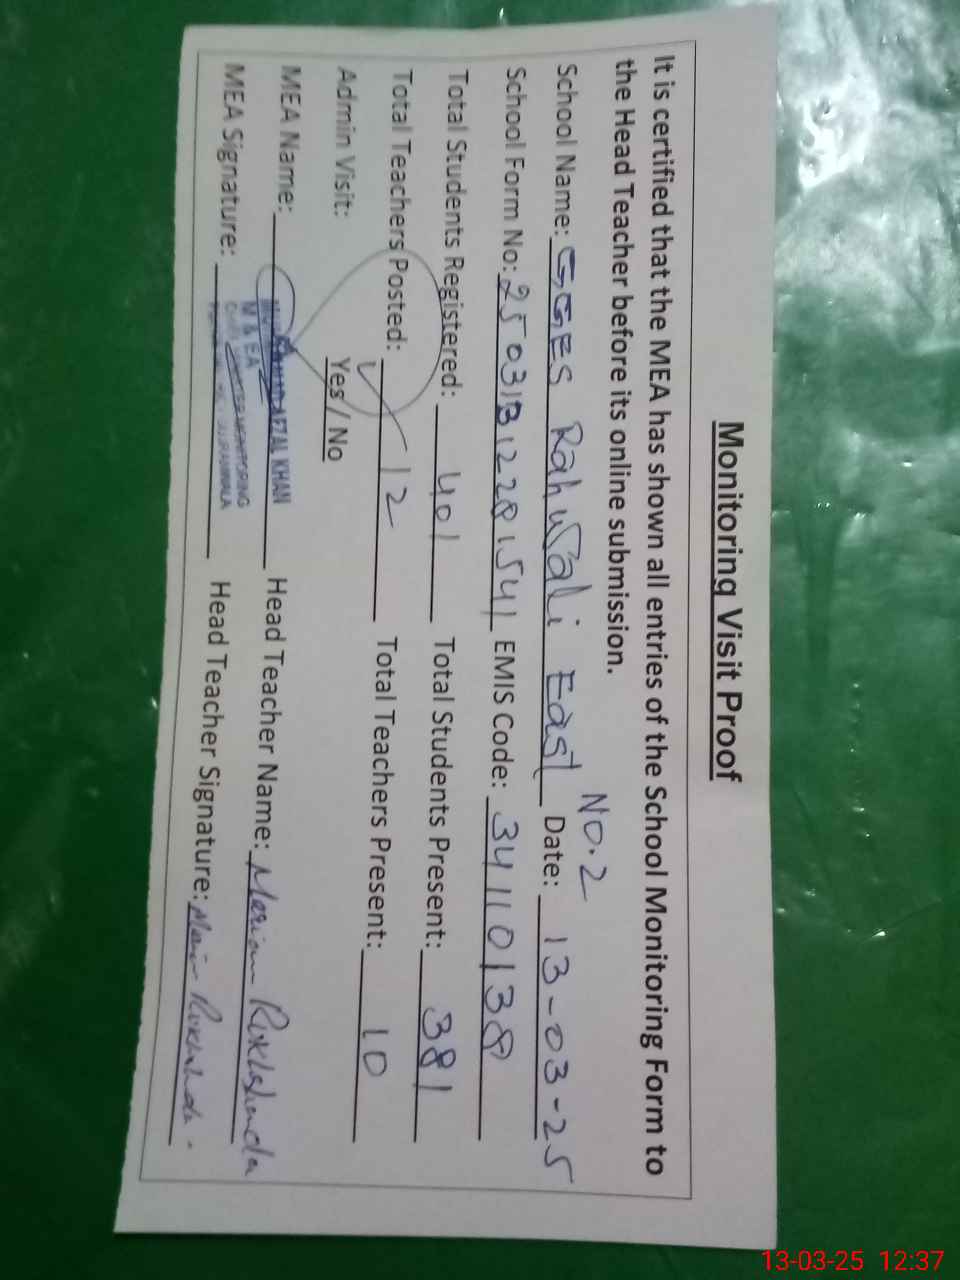 Monitoring Visit Proof
It is certified that the MEA has shown all entries of the School Monitoring Form to
the Head Teacher before its online submission.
School Name: GGES Rahwali East No.2 Date: 13-03-25
School Form No: 25031312281541 EMIS Code: 34110138
Total Students Registered: 401 Total Students Present: 381
Total Teachers Posted: 12 Total Teachers Present: 10
Admin Visit: Yes / No
MEA Name: AFZAL KHAN Head Teacher Name: Mariam Rukhshanda
M & EA
MONITORING
MEA Signature: GUJRANWALA Head Teacher Signature:
13-03-25 12:37